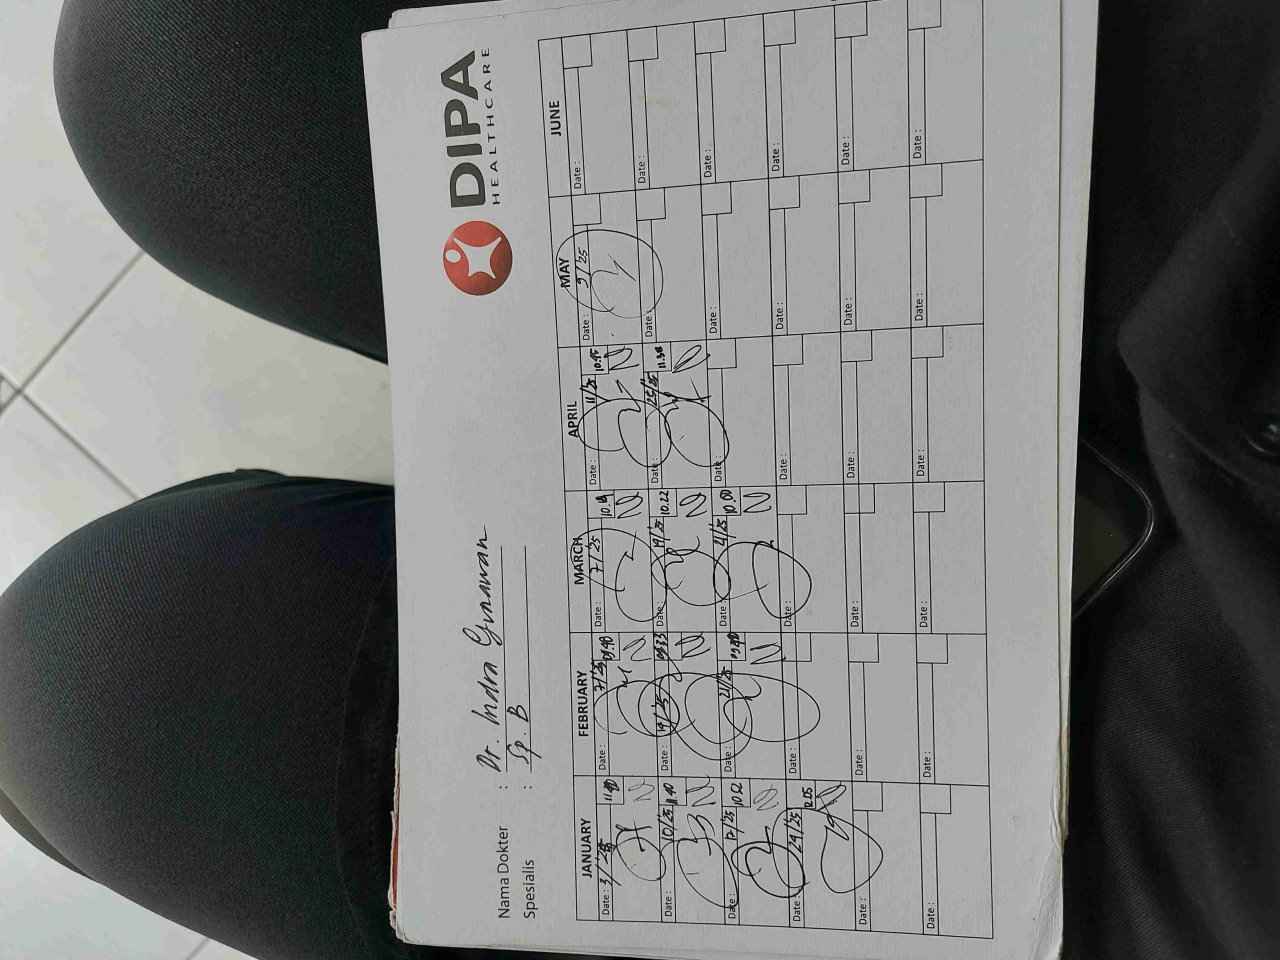 DIPA
HEALTHCARE
Nama Dokter : Dr. Indra Gunawan
Spesialis : Sp. B
JANUARY FEBRUARY MARCH APRIL MAY JUNE
Date : 3/25 Date : 7/25 Date : 7/25 Date : 11/25 10.45 Date : 9/25 Date :
Date : 10/25 11.40 Date : 14/25 09.33 Date : 14/25 10.22 Date : 25/25 11.30 Date : Date :
Date : 17/25 10.52 Date : 21/25 Date : 21/25 10.00 Date : Date : Date :
Date : 24/25 12.05 Date : Date : Date : Date : Date :
Date : Date : Date : Date : Date :
Date : Date : Date : Date : Date : Date :